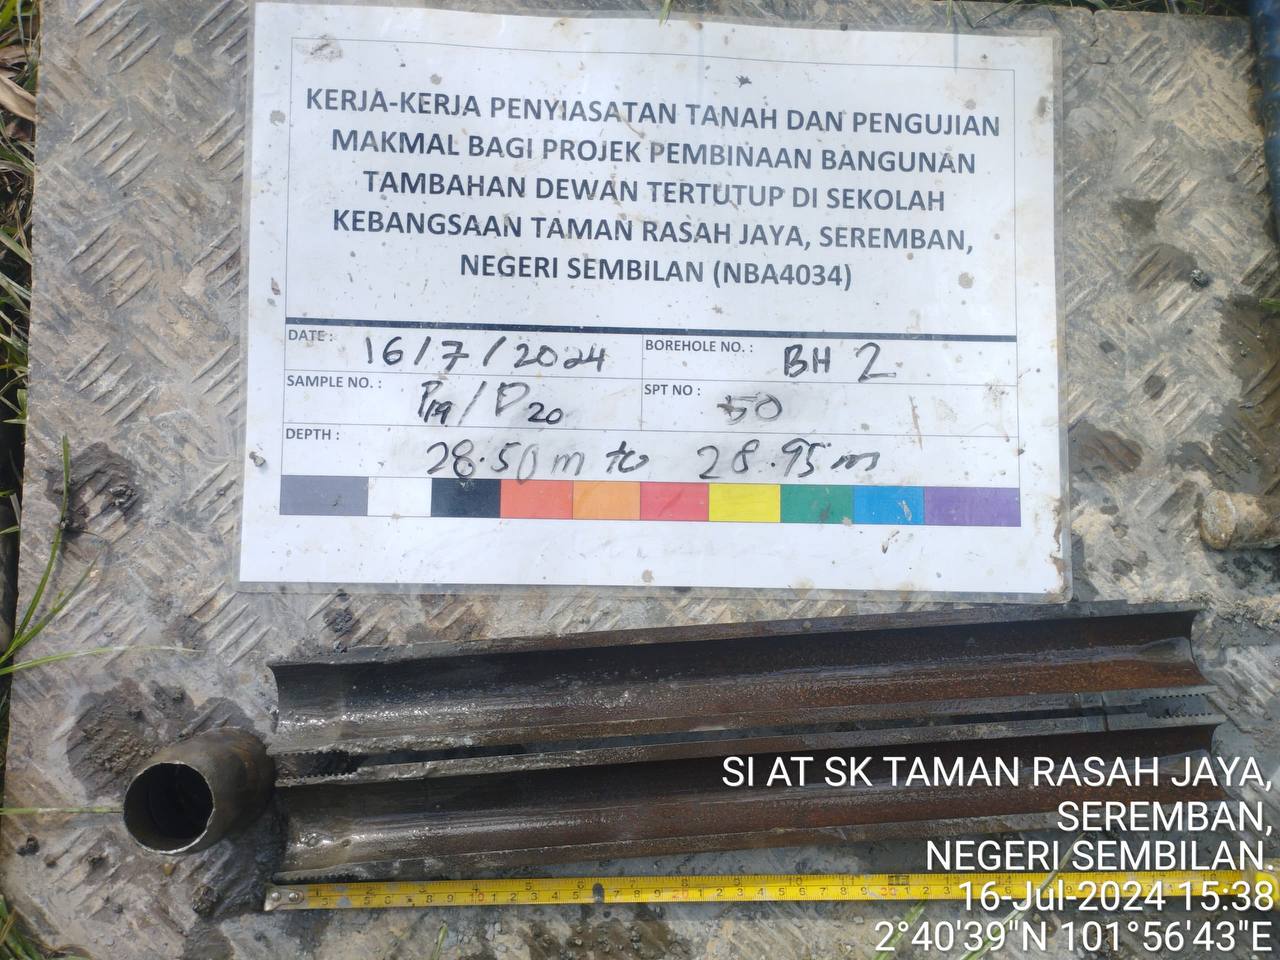 KERJA-KERJA PENYIASATAN TANAH DAN PENGUJIAN
MAKMAL BAGI PROJEK PEMBINAAN BANGUNAN
TAMBAHAN DEWAN TERTUTUP DI SEKOLAH
KEBANGSAAN TAMAN RASAH JAYA, SEREMBAN,
NEGERI SEMBILAN (NBA4034)
DATE : 16/7/2024 BOREHOLE NO. : BH 2
SAMPLE NO. : P19/D20 SPT NO : 50
DEPTH : 28.50m to 28.95m
SI AT SK TAMAN RASAH JAYA,
SEREMBAN,
NEGERI SEMBILAN.
16-Jul-2024 15:38
2°40'39"N 101°56'43"E